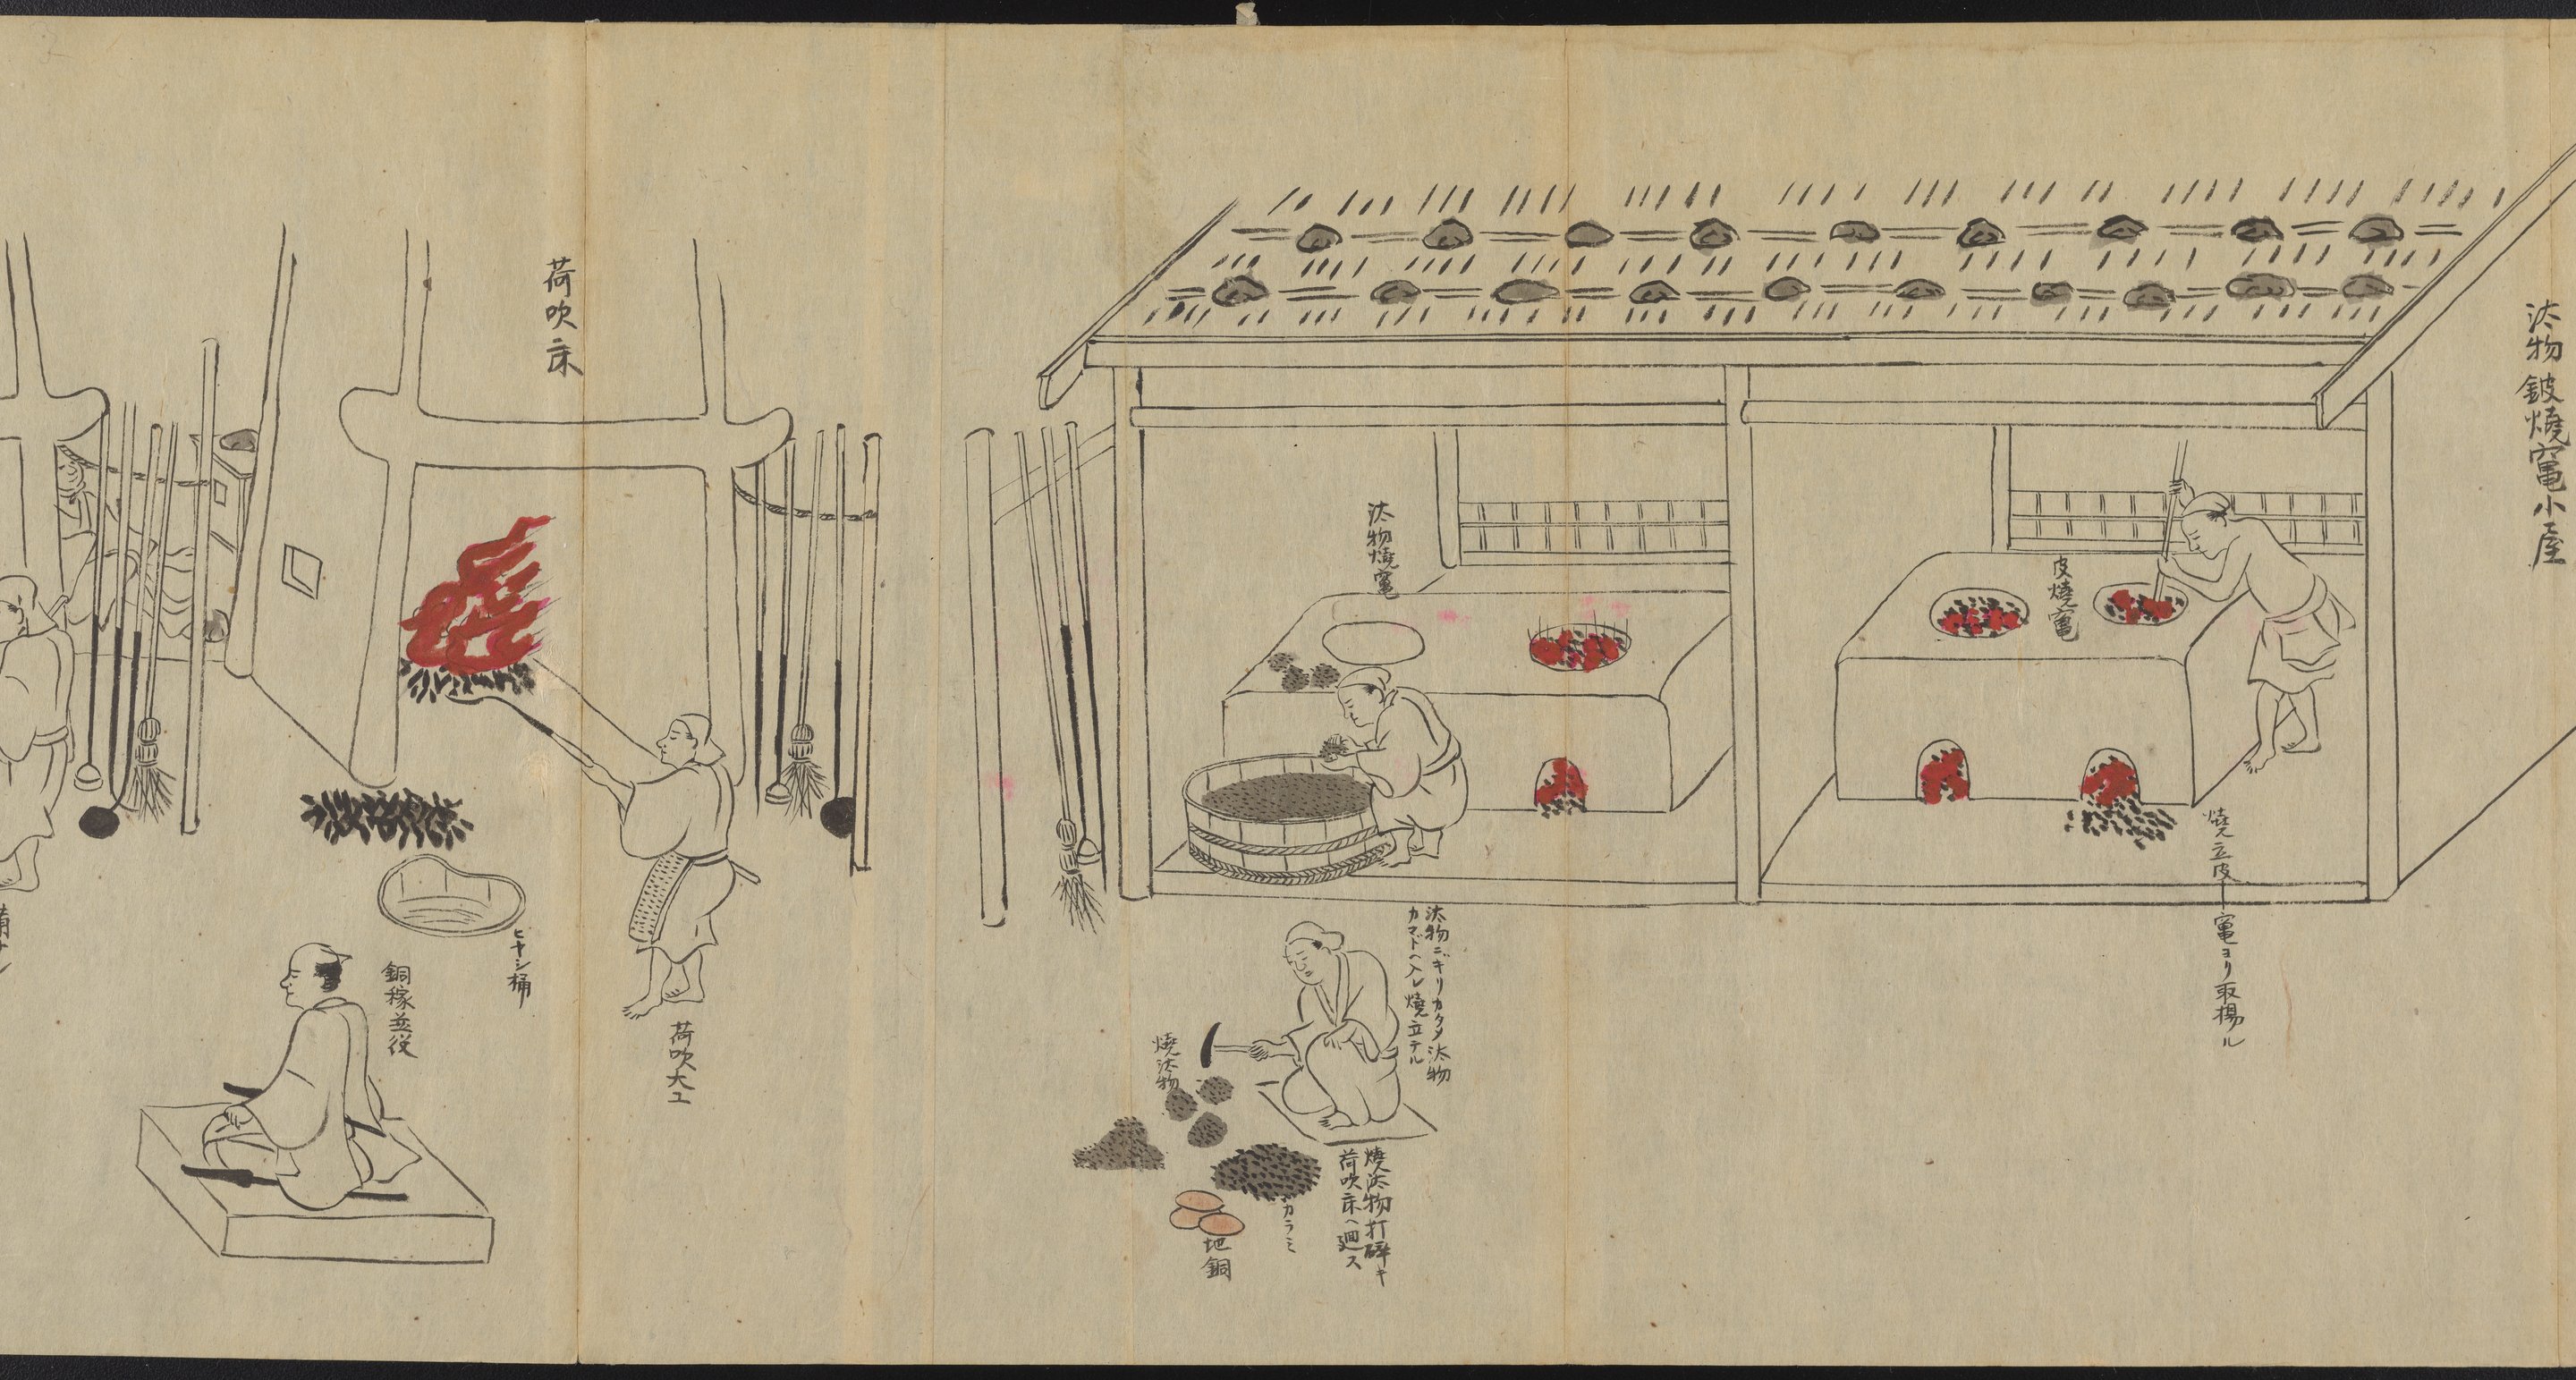 汰物鈹燒竃小屋
皮燒竃
燒立皮ー竃ヨリ取揚ル
汰物燒竃
汰物ニギリカタメ汰物
カマドヘ入レ燒立テル
燒汰物打碎キ
荷吹床ヘ廻ス
カラミ
地銅
燒汰物
荷吹床
荷吹大工
ヒヤシ桶
銅稼並役